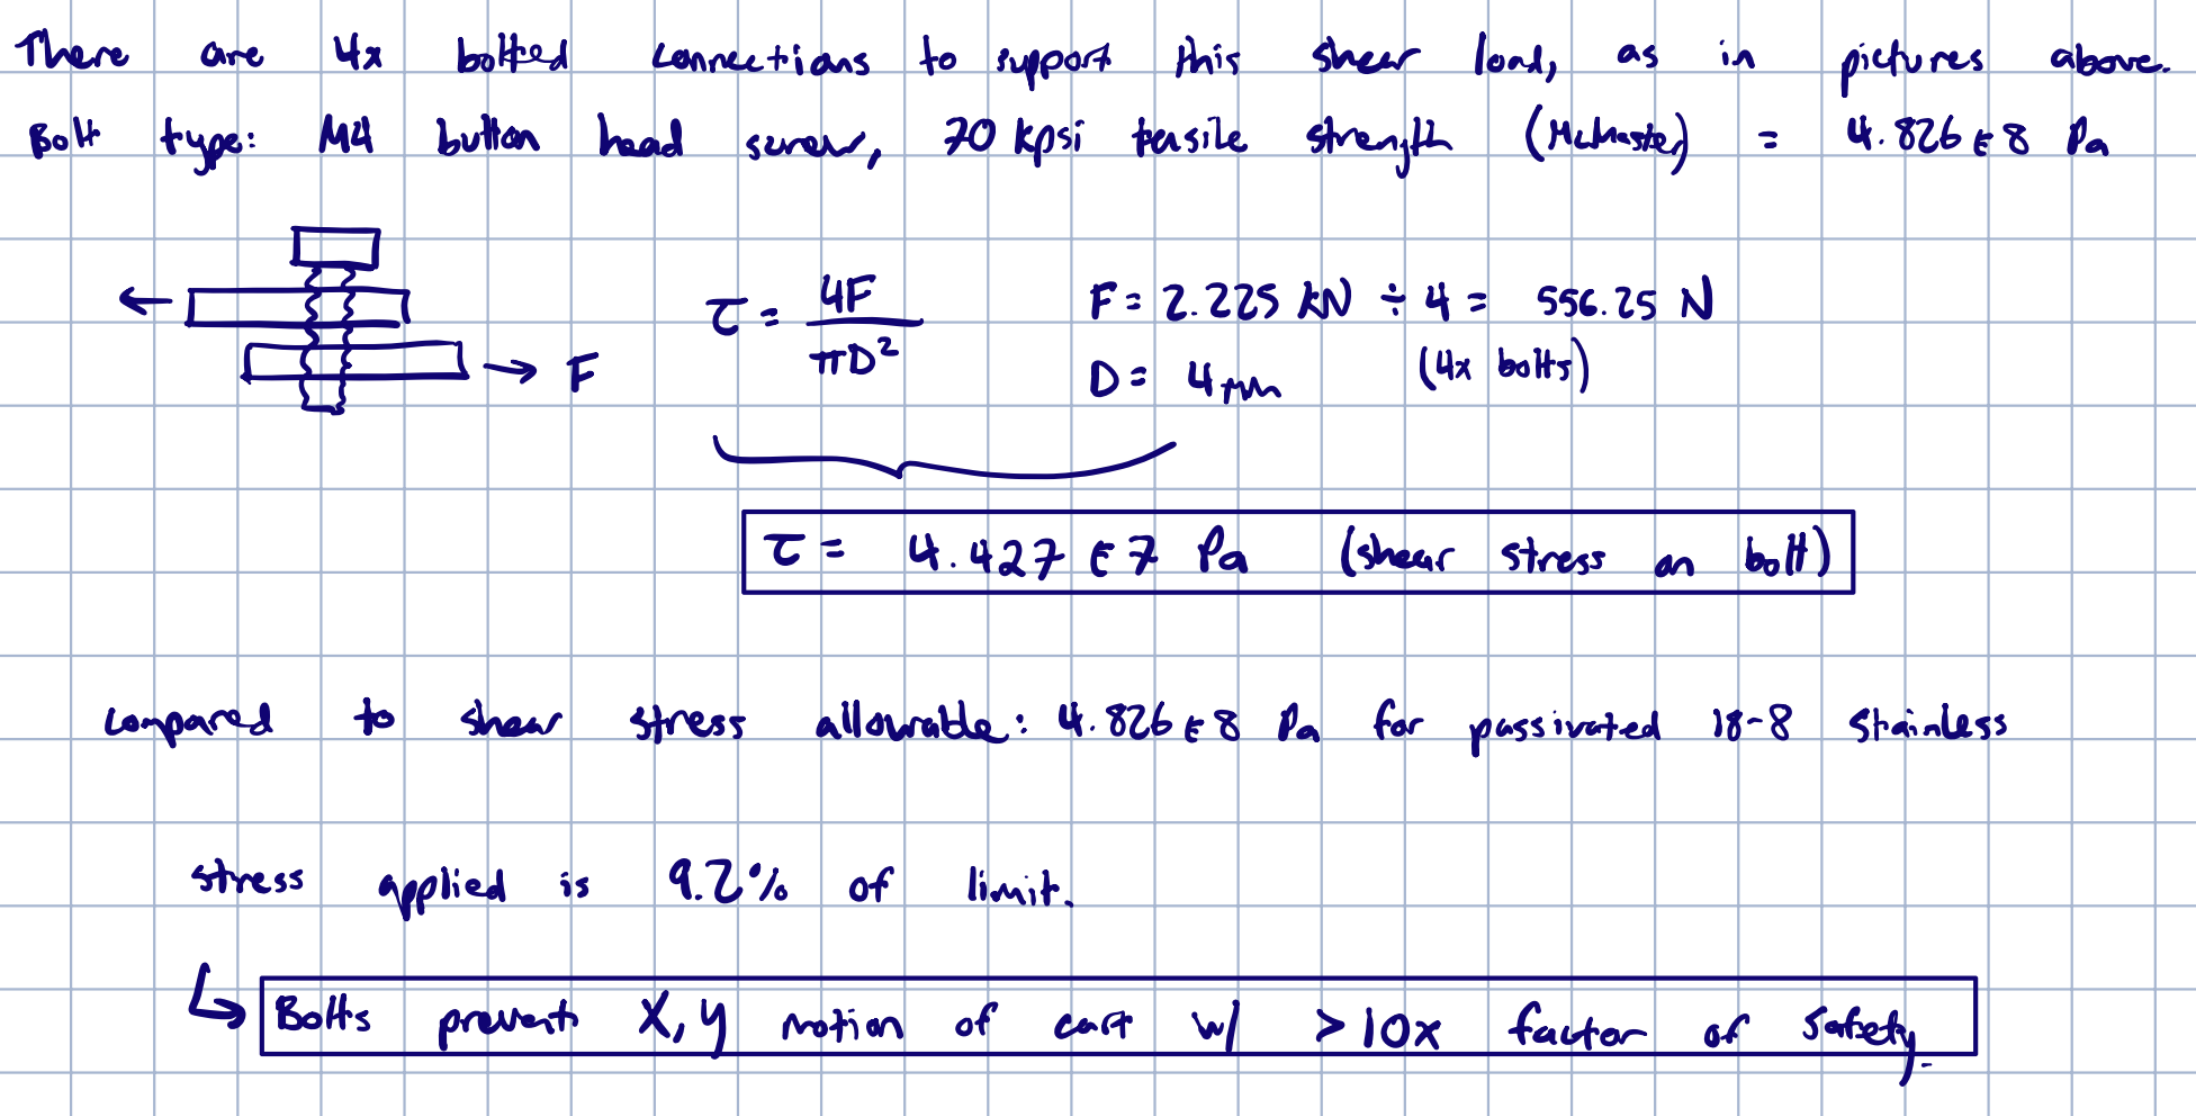 There are 4x bolted connections to support this shear load, as in pictures above.
Bolt type: M4 button head screw, 70 kpsi tensile strength (McMaster) = 4.826 E 8 Pa
τ = 4F / πD²
F = 2.225 kN ÷ 4 = 556.25 N
(4x bolts)
D = 4 mm
F
τ = 4.427 E 7 Pa (shear stress on bolt)
compared to shear stress allowable: 4.826 E 8 Pa for passivated 18-8 stainless
stress applied is 9.2% of limit.
Bolts prevent X, Y motion of cart w/ >10x factor of safety.